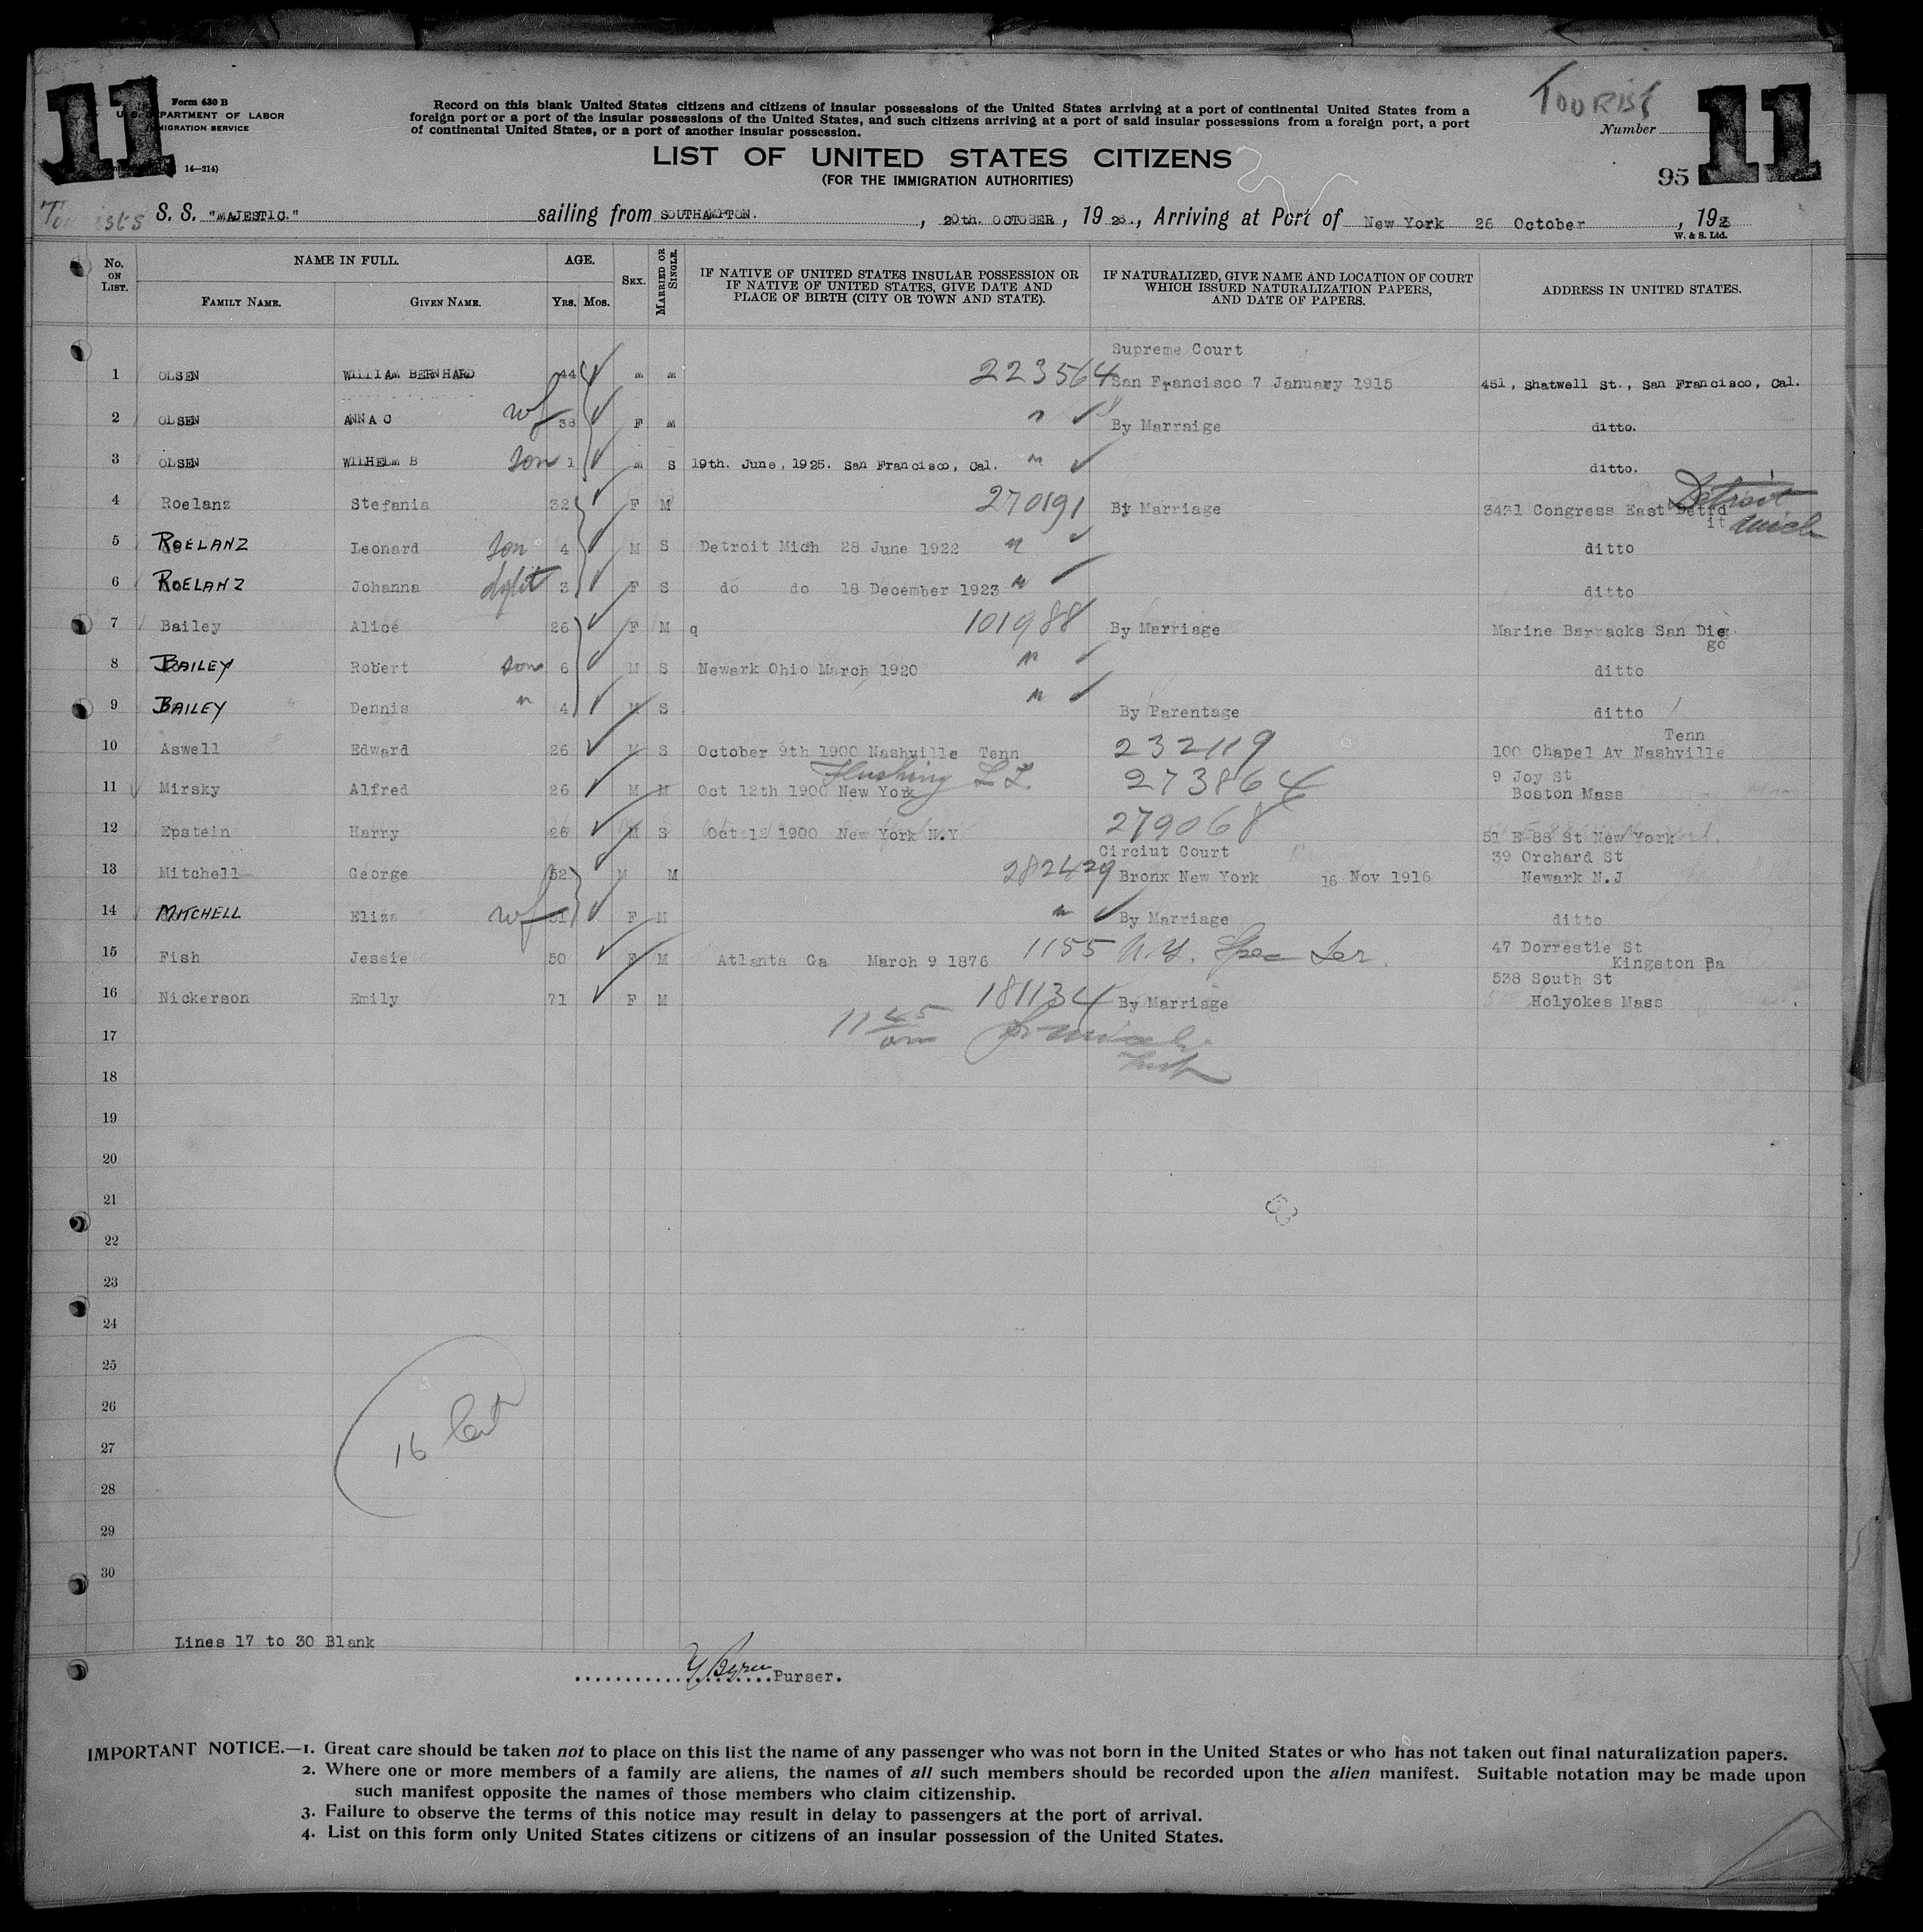 11
Form 630 B
U. S. DEPARTMENT OF LABOR
IMMIGRATION SERVICE
14—214)
Record on this blank United States citizens and citizens of insular possessions of the United States arriving at a port of continental United States from a
foreign port or a port of the insular possessions of the United States, and such citizens arriving at a port of said insular possessions from a foreign port, a port
of continental United States, or a port of another insular possession.
TOURIST
Number
11
LIST OF UNITED STATES CITIZENS
(FOR THE IMMIGRATION AUTHORITIES)
95
Tourists S. S. "MAJESTIC." sailing from SOUTHAMPTON. , 20th. OCTOBER , 19 26., Arriving at Port of New York 26 October , 192
W. & S. Ltd.
No. ON LIST. NAME IN FULL. AGE. SEX. MARRIED OR SINGLE. IF NATIVE OF UNITED STATES INSULAR POSSESSION OR IF NATIVE OF UNITED STATES, GIVE DATE AND PLACE OF BIRTH (CITY OR TOWN AND STATE). IF NATURALIZED, GIVE NAME AND LOCATION OF COURT WHICH ISSUED NATURALIZATION PAPERS, AND DATE OF PAPERS. ADDRESS IN UNITED STATES.
FAMILY NAME. GIVEN NAME. YRS. MOS.
Supreme Court
1 OLSEN WILLIAM BERNHARD 44 M M 223564 San Francisco 7 January 1915 451, Shatwell St., San Francisco, Cal.
2 OLSEN ANNA C wf 38 F M " By Marraige ditto.
3 OLSEN WILHELM B son 1 M S 19th. June, 1925. San Francisco, Cal. " ditto.
4 Roelanz Stefania 32 F M 270191 By Marriage 3431 Congress East Detroit Detroit Mich
5 ROELANZ Leonard son 4 M S Detroit Mich 28 June 1922 " ditto
6 ROELANZ Johanna 3 F S do do 18 December 1923 " ditto
7 Bailey Alice 26 F M q 101988 By Marriage Marine Barracks San Diego
8 BAILEY Robert son 6 M S Newark Ohio March 1920 " ditto
9 BAILEY Dennis " 4 M S " By Parentage ditto
10 Aswell Edward 26 M S October 9th 1900 Nashville Tenn 232119 100 Chapel Av Nashville Tenn
11 Mirsky Alfred 26 M M Oct 12th 1900 New York Flushing L I. 273864 9 Joy St Boston Mass
12 Epstein Harry 26 M S Oct 12 1900 New York N.Y 279068 51 E 88 St New York
13 Mitchell George 52 M M 282429 Circiut Court Bronx New York 16 Nov 1916 39 Orchard St Newark N.J
14 MITCHELL Eliza wf 51 F M " By Marriage ditto
15 Fish Jessie 50 F M Atlanta Ga March 9 1876 1155 N.Y. Spec Ser. 47 Dorrestie St Kingston Pa
16 Nickerson Emily 71 F M 181134 By Marriage 538 South St Holyokes Mass
17 11 45 am
18
19
20
21
22
23
24
25
26
27 16
28
29
30
Lines 17 to 30 Blank
Purser.
IMPORTANT NOTICE.—1. Great care should be taken not to place on this list the name of any passenger who was not born in the United States or who has not taken out final naturalization papers.
2. Where one or more members of a family are aliens, the names of all such members should be recorded upon the alien manifest. Suitable notation may be made upon
such manifest opposite the names of those members who claim citizenship.
3. Failure to observe the terms of this notice may result in delay to passengers at the port of arrival.
4. List on this form only United States citizens or citizens of an insular possession of the United States.